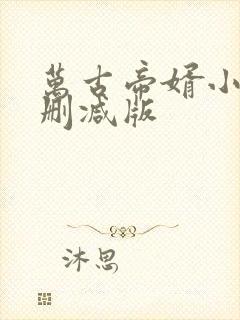 萬古帝婿小
刪減版
沐思